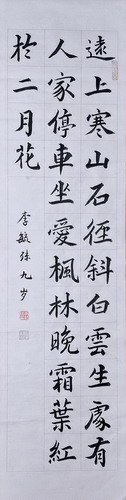 遠上寒山石徑斜白雲生處有
人家停車坐愛楓林晚霜葉紅
於二月花
李毓綝九岁